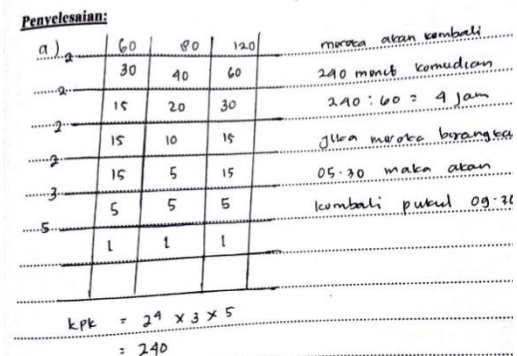 Penyelesaian:
a) 2 60 80 120
2 30 40 60
2 15 20 30
2 15 10 15
3 15 5 15
5 5 5 5
1 1 1
kpk = 2⁴ x 3 x 5
= 240
mereka akan kembali
240 menit kemudian
240 : 60 = 4 jam
jika mereka berangka
05.30 maka akan
kembali pukul 09.30